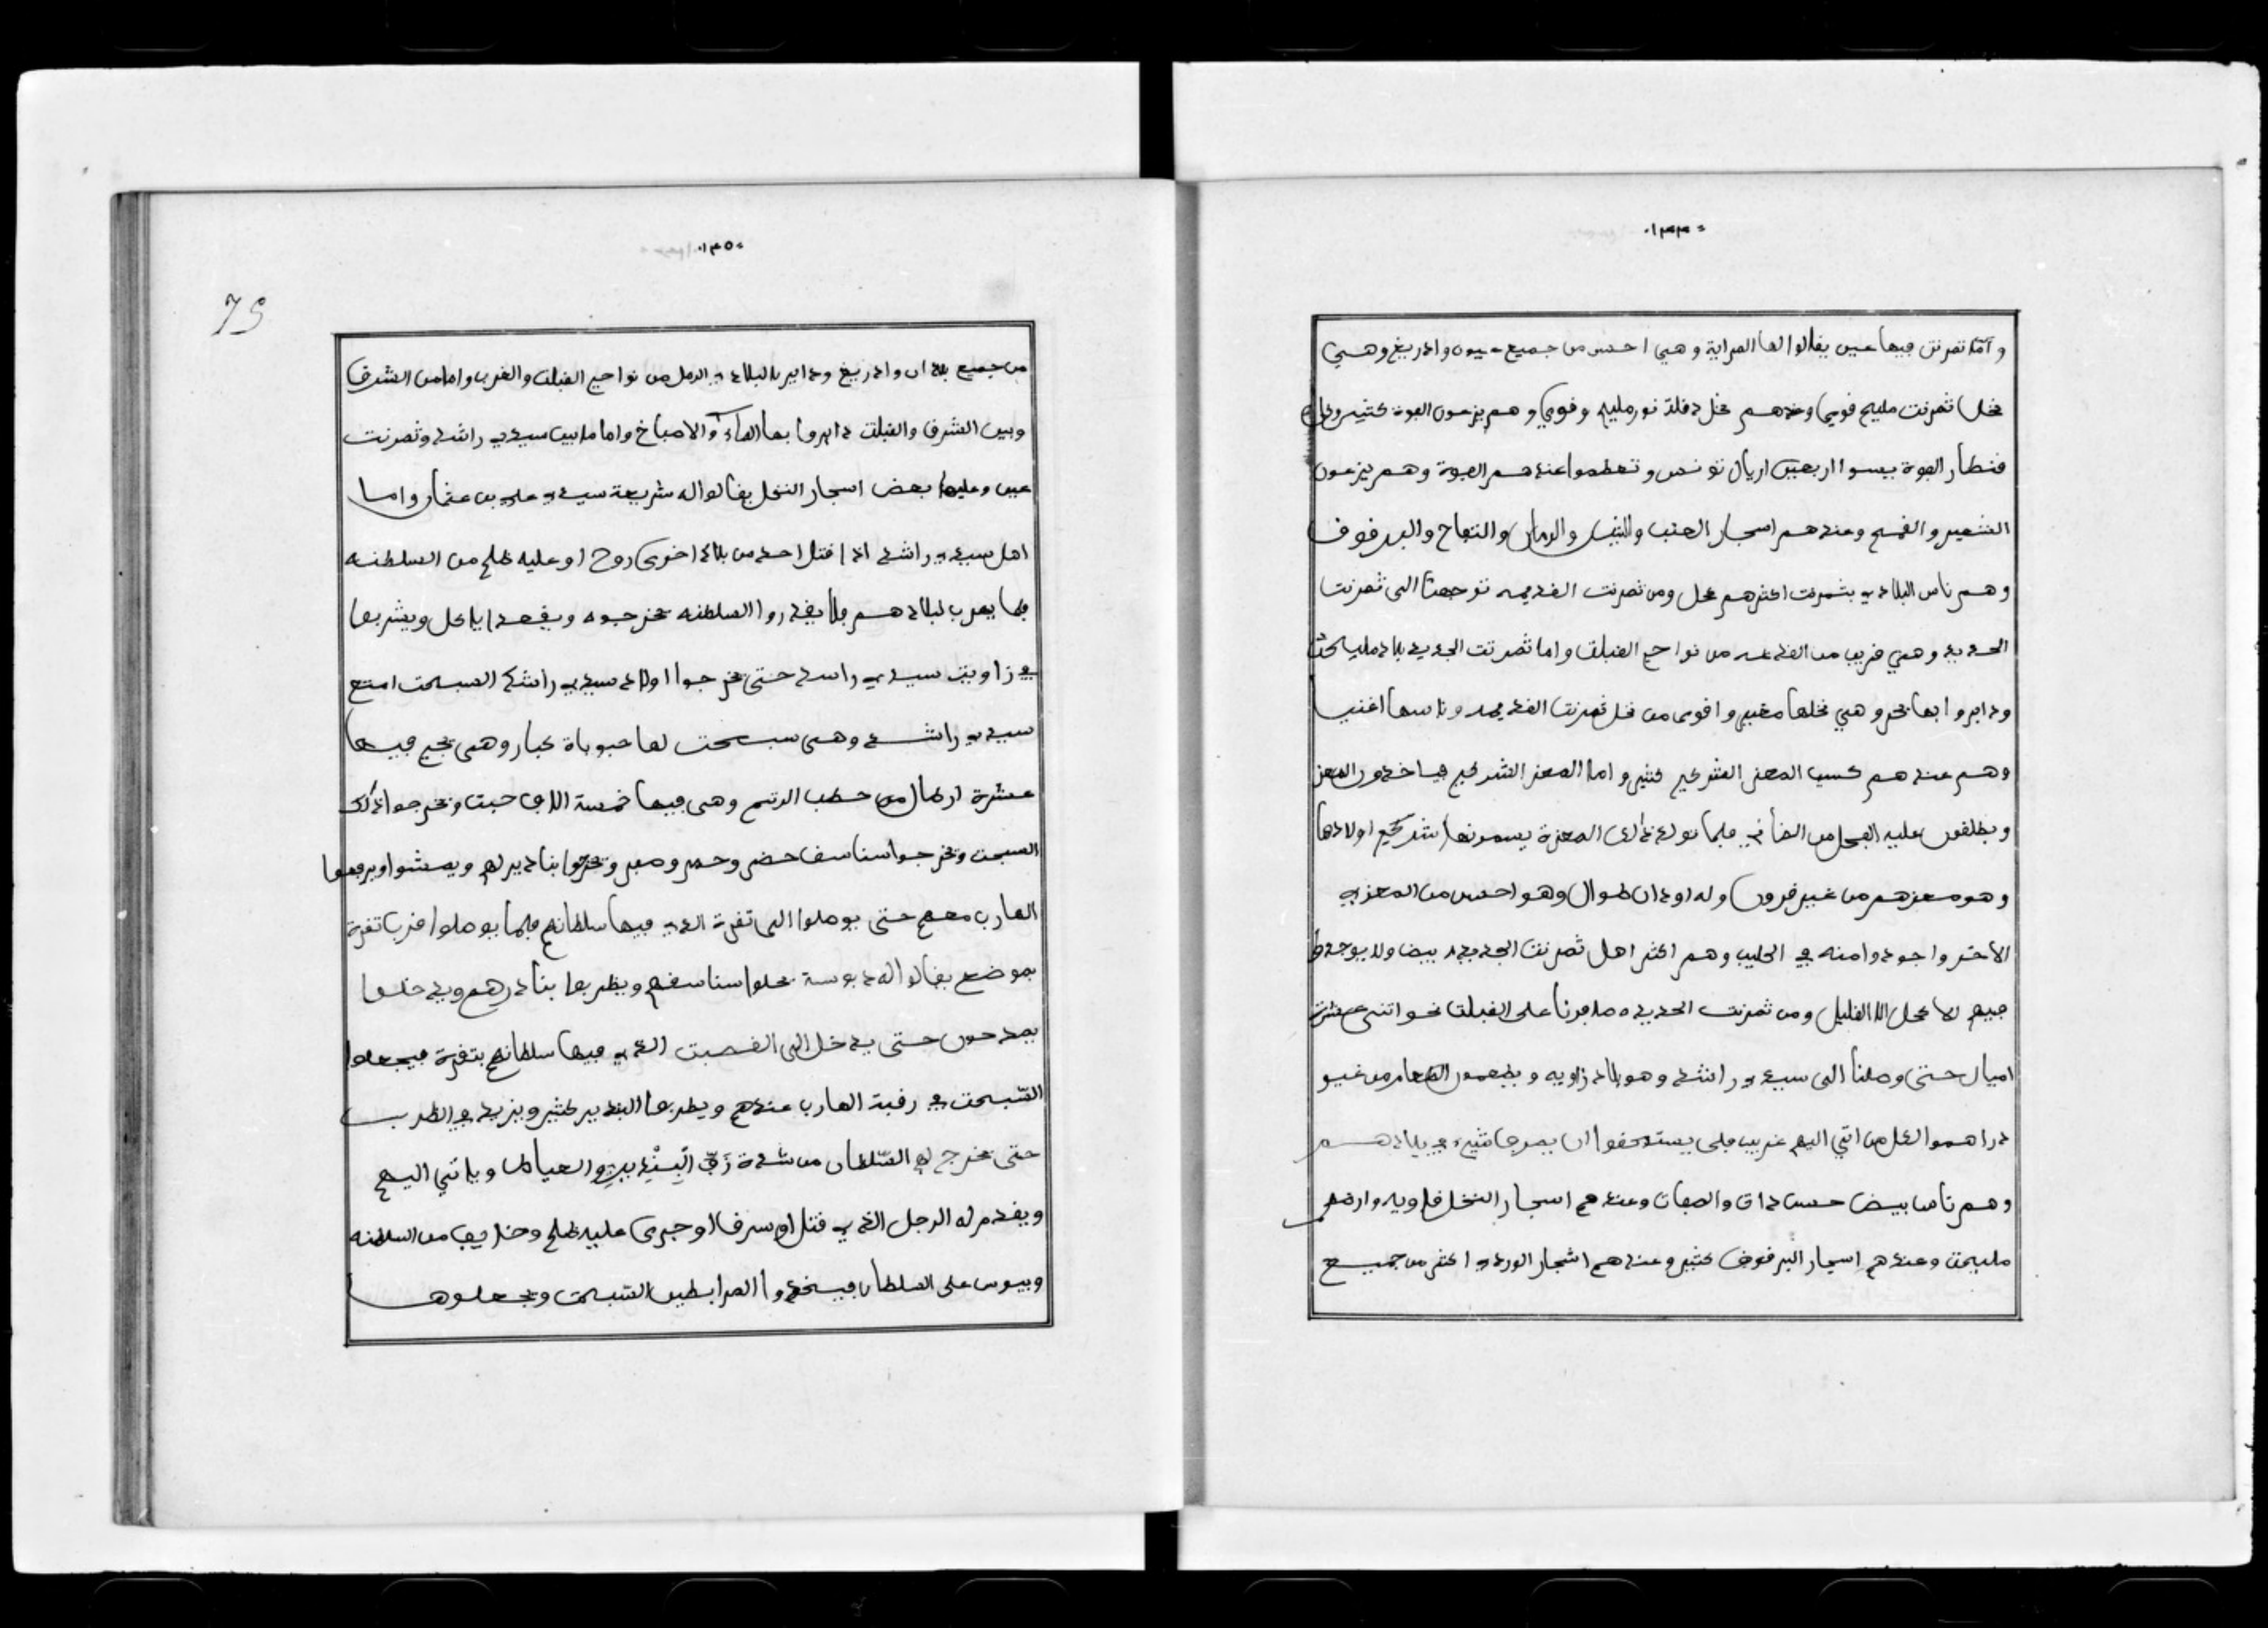 ٠١٣٤٠
وامّا تمرنت فيها عين يقالوا لها المراية وهي احسن من جميع عيون وادريغ وهي
نخل ثمرنت مليح قوي وعندهم نخل دقلة نور مليح وقوي وهم يزرعون الفوة كثير
قنطار الفوة بيسوا اربعين اريال تونس وتعظموا عندهم الفوة وهم يزرعون
الشعير والقمح وعندهم اسجار العنب والتين والرمان والتفاح والبرقوق
وهم ناس البلادي بثمرنت اكثرهم كحل ومن ثمرنت القديمه توجهنا الى ثمرنت
الجديد وهي قريب من القديمه من نواحي القبلة واما ثمرنت الجديد بلاد مليحة
ودايروا بها بحر وهي نخلها مغير واقوى من نخل ثمرنت القديمه وناسها اغنيا
وهم عندهم كسيب المعز الشركي كثير واما المعز الشركي فياخدون المعز
ويطلقون عليه الفحل من الضاني فلما تولد ذلك المعزة يسمونها شركي اولادها
وهو معزهم من غير قرون وله اودان طوال وهو احسن من المعزي
الاخر واجود وامنه في الحليب وهم اكثر اهل ثمرنت الجديد بيض ولا يوجد
فيهم الا كحل الا القليل ومن ثمرنت الجديده سافرنا على القبلة نحو اتنى عشرة
اميال حتى وصلنا الى سيدي راشد وهو بلاد زاويه ويطعمون الطعام من غير
دراهموا لكل من اتي اليهم غريب فلى يستحقوا ان يصرفا شيء في بلادهم
وهم ناس بيض حسن دات والصفات وعندهم اسجار النخل قلويه وارضهم
مليحة وعندهم اسجار البرقوق كثير وعندهم اشجار الوردي اكثر من جميع
٠١٣٥٠
75
من جميع بلدان وادريغ وداير بالبلاد الرمل من نواحي القبلة والغرب واما من الشرق
وبين الشرق والقبلة دايروا بها الماء والاصباخ واما ما بين سيدي راشد وثمرنت
عين وعليها بعض اسجار النخل يقالوا له شريعة سيدي علي بن عثمان واما
اهل سيدي راشد اذا قتل احد من بلاد اخرى روح او عليه ظلم من السلطنه
فلما يهرب لبلادهم فلا يقدروا السلطنه تخرجوه ويقعد ياكل ويشربها
في زاوية سيدي راسد حتى تخرجوا اولاد سيدي راشد السبحة امتع
سيدي راشد وهي سبحت لها حبوباة كبار وهي نجي فيها
عشرة ارطال من حطب الرتم وهي فيها خمسة الاف حبة وتخرجوا ذلك
السبحت وتخرجوا سناسق خضر وحمر وصفر وتخرجوا بنادير لهم ويمشوا ويرفعوا
الهارب معهم حتى يوصلوا الى تقرة الذي فيها سلطانهم فلما يوصلوا قرب تقرة
بموضع يقالوا له دبوسة تحلوا سناسقهم ويظربوا بنادرهم ويدخلوا
يمدحون حتى يدخل الى القصبت الذي فيها سلطانهم بتقرة فيجعلوا
السّبحت في رقبة الهارب عندهم ويظربوا البندير كثير ويزيد في الظرب
حتى يخرج لهم السّلطان من شدة زقّ البندير والعياط وياتي اليهم
ويقدم له الرجل الذي قتل او سرق او جرى عليه ظلم وخايف من السلطنه
ويبوس على السلطان فيخدوا المرابطين السّبحت ويجعلوها